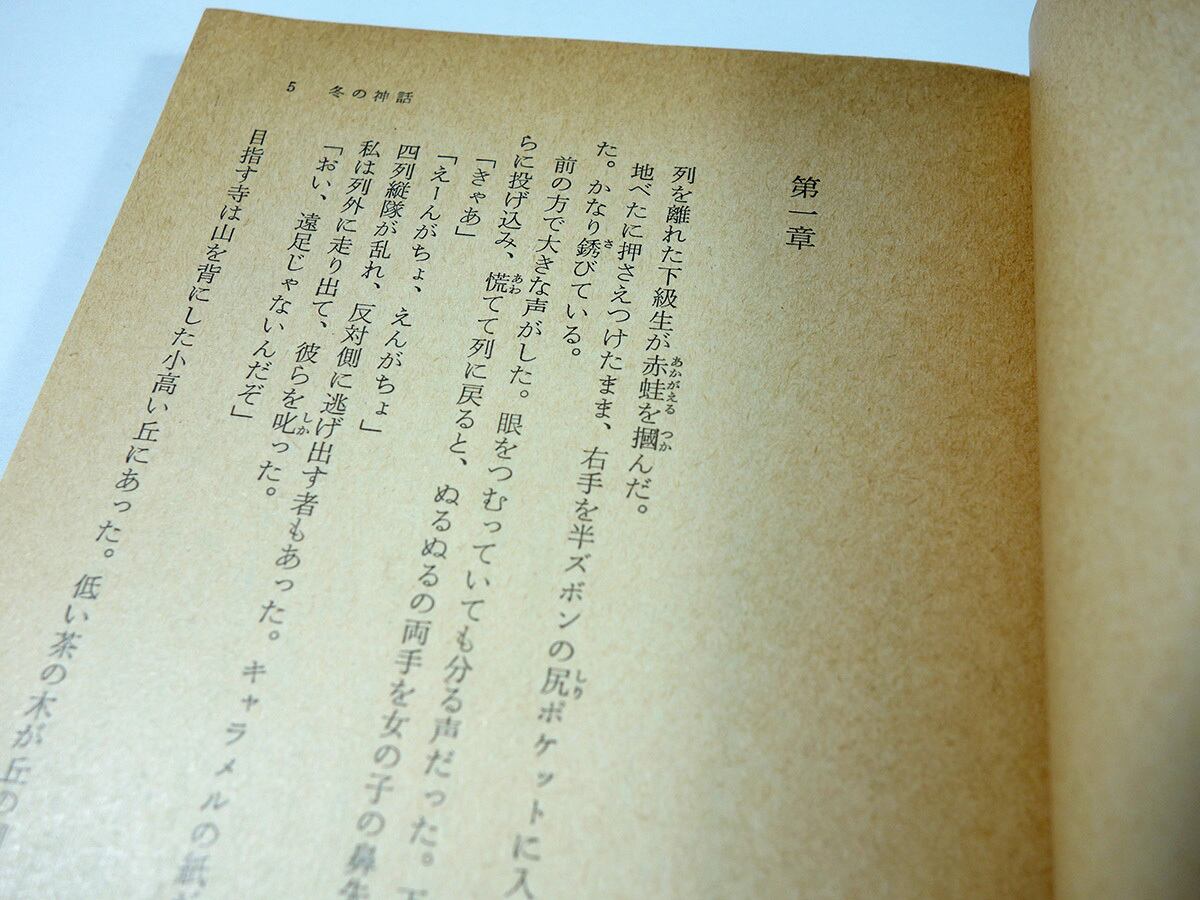 5 冬の神話
第一章
列を離れた下級生が赤蛙を摑んだ。
地べたに押さえつけたまま、右手を半ズボンの尻ポケットに入
た。かなり銹びている。
前の方で大きな声がした。眼をつむっていても分る声だった。
らに投げ込み、慌てて列に戻ると、ぬるぬるの両手を女の子の鼻先
「きゃあ」
「えーんがちょ、えんがちょ」
四列縦隊が乱れ、反対側に逃げ出す者もあった。キャラメルの紙
私は列外に走り出て、彼らを叱った。
「おい、遠足じゃないんだぞ」
目指す寺は山を背にした小高い丘にあった。低い茶の木が丘の